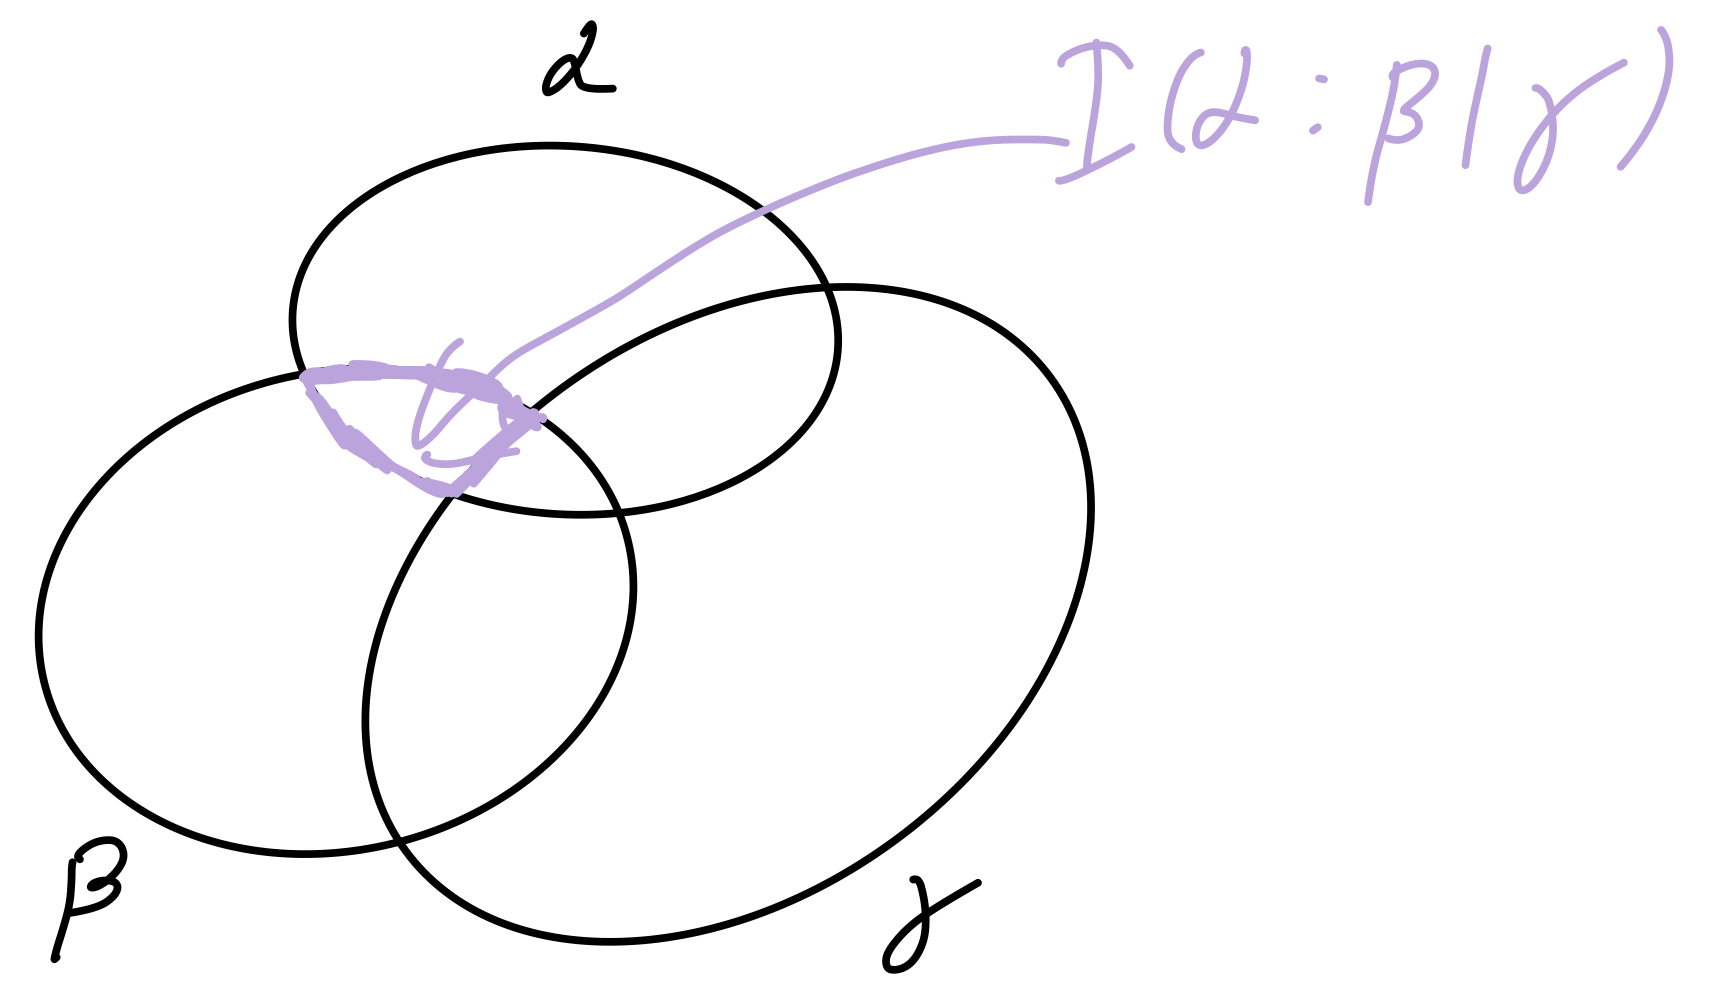 α
I(α:β|γ)
β
γ